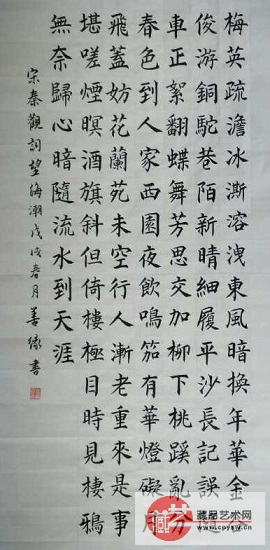 梅英疏澹冰澌溶洩東風暗換年華金谷
俊游銅駝巷陌新晴細履平沙長記誤隨
車正絮翻蝶舞芳思交加柳下桃蹊亂分
春色到人家西園夜飲鳴笳有華燈礙月
飛蓋妨花蘭苑未空行人漸老重來是事
堪嗟煙暝酒旗斜但倚樓極目時見棲鴉
無奈歸心暗隨流水到天涯
宋秦觀詞望海潮戊戌春月善緣書
藏品艺术网
www.cpysw.cn